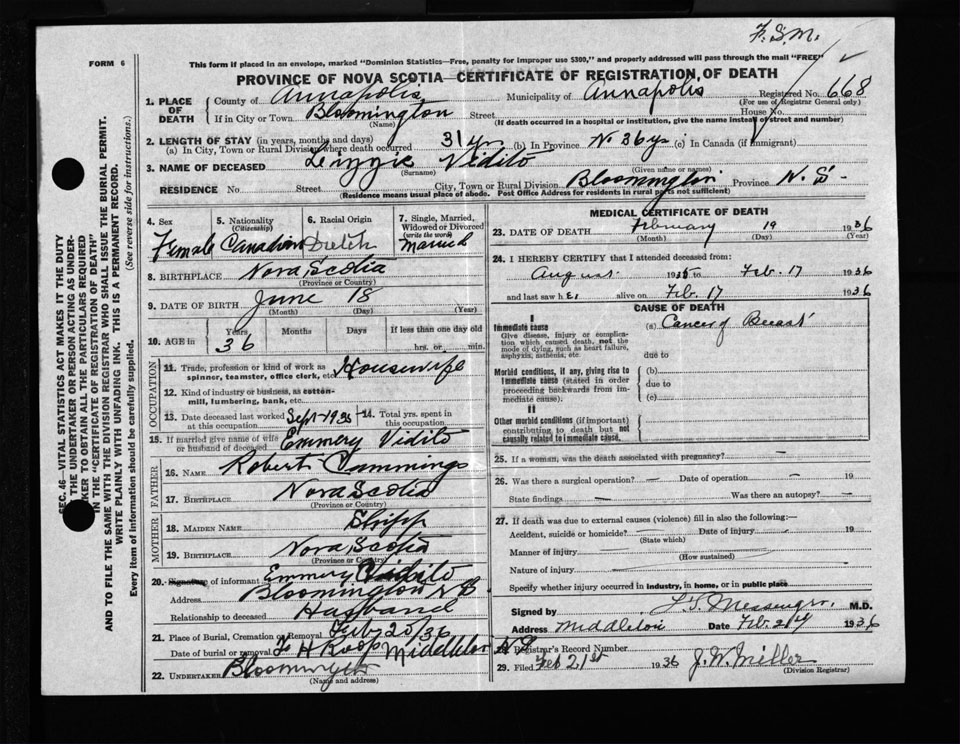 F.S.M.
FORM 6
This form if placed in an envelope, marked "Dominion Statistics—Free, penalty for improper use $300," and properly addressed will pass through the mail "FREE"
PROVINCE OF NOVA SCOTIA—CERTIFICATE OF REGISTRATION OF DEATH
1. PLACE OF DEATH County of Annapolis Municipality of Annapolis Registered No. 668
(For use of Registrar General only)
If in City or Town Bloomington Street House No.
(Name) (If death occurred in a hospital or institution, give the name instead of street and number)
2. LENGTH OF STAY (in years, months and days)
(a) In City, Town or Rural Division where death occurred 31 yr (b) In Province N 36 ys (c) In Canada (if immigrant)
3. NAME OF DECEASED Lizzie Vidito
(Surname) (Given name or names)
RESIDENCE No. Street City, Town or Rural Division Bloomington Province N.S-
(Residence means usual place of abode. Post Office Address for residents in rural parts not sufficient)
4. Sex 5. Nationality (Citizenship) 6. Racial Origin 7. Single, Married, Widowed or Divorced (write the word)
Female Canadian Dutch Married
8. BIRTHPLACE Nova Scotia
(Province or Country)
9. DATE OF BIRTH June 18
(Month) (Day) (Year)
10. AGE in Years Months Days If less than one day old
36 hrs. or min.
OCCUPATION
11. Trade, profession or kind of work as spinner, teamster, office clerk, etc. Housewife
12. Kind of industry or business, as cotton-mill, lumbering, bank, etc.
13. Date deceased last worked at this occupation Sept-1935 14. Total yrs. spent in this occupation
15. If married give name of wife or husband of deceased Emmery Vidito
FATHER
16. NAME Robert Cummings
17. BIRTHPLACE Nova Scotia
(Province or Country)
MOTHER
18. MAIDEN NAME
19. BIRTHPLACE Nova Scotia
(Province or Country)
20. Signature of informant Emmery Vidito
Address Bloomington N S
Relationship to deceased Husband
21. Place of Burial, Cremation or Removal Feb 20/36
Date of burial or removal F H Roop Middleton N S
22. UNDERTAKER Bloomington
(Name and address)
MEDICAL CERTIFICATE OF DEATH
23. DATE OF DEATH February 19 1936
(Month) (Day) (Year)
24. I HEREBY CERTIFY that I attended deceased from:
August 1935 to Feb. 17 1936
and last saw her alive on Feb. 17 1936
CAUSE OF DEATH
I
Immediate cause (a) Cancer of Breast
Give disease, injury or complication which caused death, not the mode of dying, such as heart failure, asphyxia, asthenia, etc.
due to
Morbid conditions, if any, giving rise to immediate cause (stated in order proceeding backwards from immediate cause).
(b)
due to
(c)
II
Other morbid conditions (if important) contributing to death but not causally related to immediate cause.
25. If a woman, was the death associated with pregnancy? —
26. Was there a surgical operation? — Date of operation — 19
State findings — Was there an autopsy? —
27. If death was due to external causes (violence) fill in also the following:—
Accident, suicide or homicide? Date of injury 19
(State which)
Manner of injury
(How sustained)
Nature of injury
Specify whether injury occurred in industry, in home, or in public place
Signed by Messenger M.D.
Address Middleton Date Feb. 1936
Registrar's Record Number
29. Filed Feb 21st 1936 J.W. Miller
(Division Registrar)
SEC. 46—VITAL STATISTICS ACT MAKES IT THE DUTY
OF THE UNDERTAKER OR PERSON ACTING AS UNDER-
TAKER TO OBTAIN ALL THE PARTICULARS REQUIRED
IN THE "CERTIFICATE OF REGISTRATION OF DEATH"
AND TO FILE THE SAME WITH THE DIVISION REGISTRAR WHO SHALL ISSUE THE BURIAL PERMIT.
WRITE PLAINLY WITH UNFADING INK. THIS IS A PERMANENT RECORD.
Every item of information should be carefully supplied. (See reverse side for instructions.)